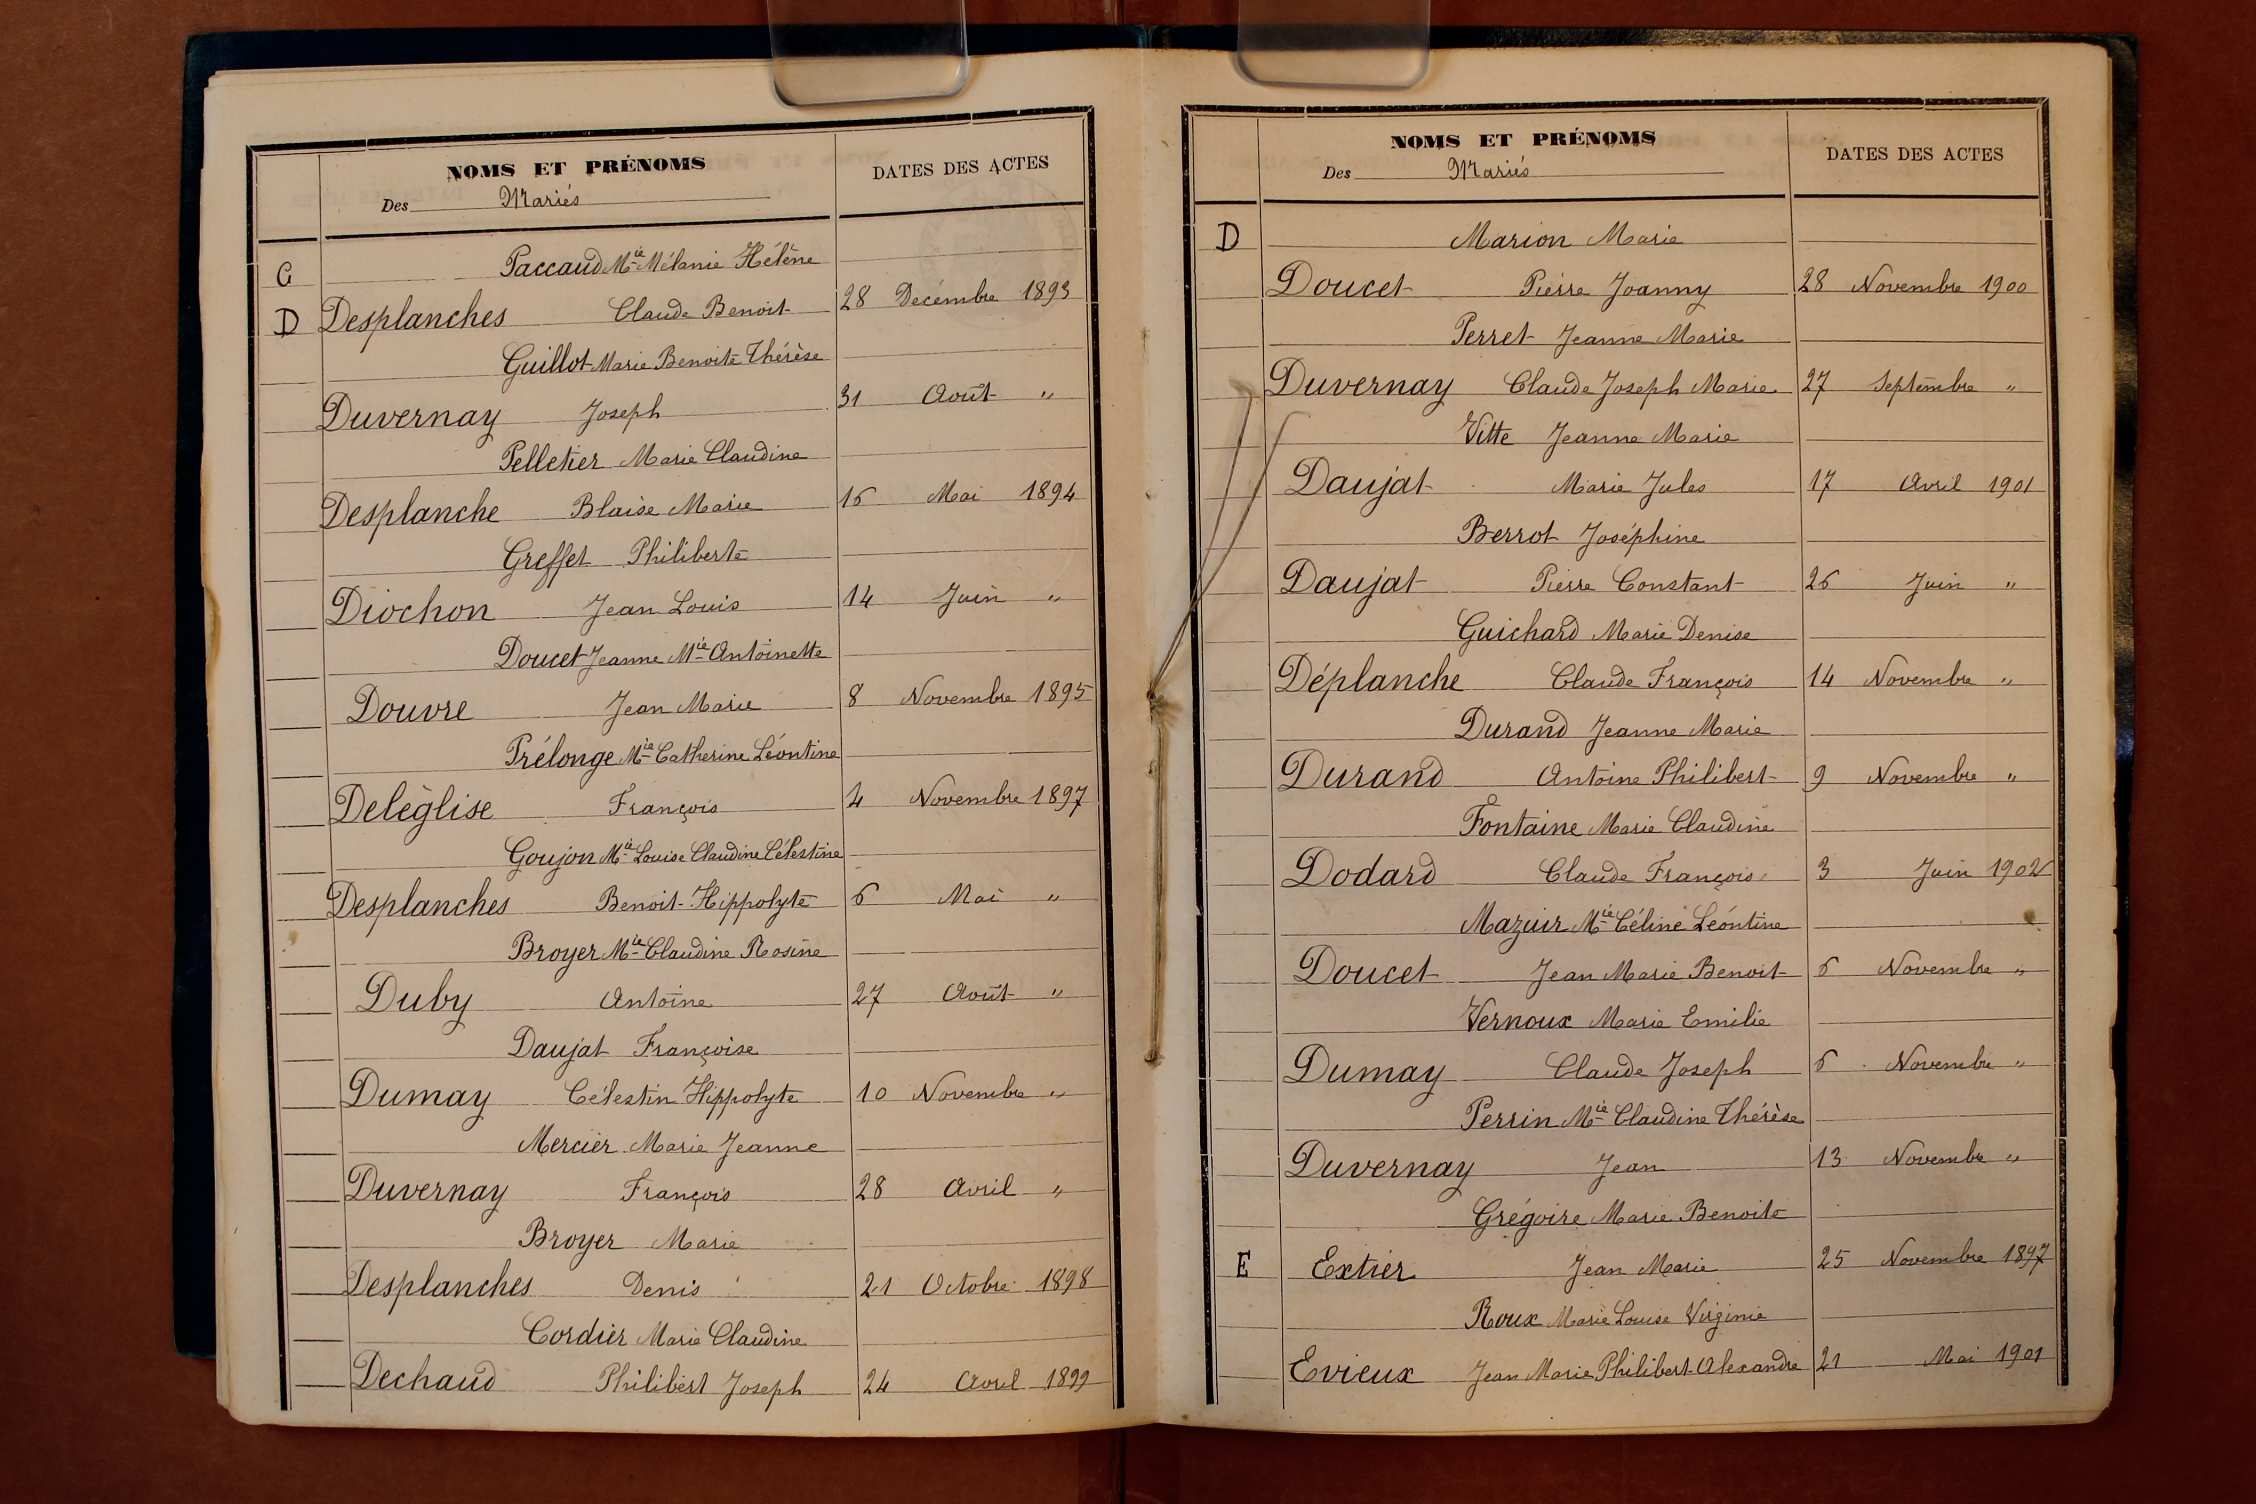 NOMS ET PRÉNOMS DATES DES ACTES
Des Mariés
C Paccaud Mie Mélanie Hélène
D Desplanches Claude Benoit 28 Decémbre 1893
Guillot Marie Benoite Thérèse
Duvernay Joseph 31 Août "
Pelletier Marie Claudine
Desplanche Blaise Marie 16 Mai 1894
Greffet Philiberte
Diochon Jean Louis 14 Juin "
Doucet Jeanne Mie Antoinette
Douvre Jean Marie 8 Novembre 1895
Prélonge Mie Catherine Léontine
Deléglise François 4 Novembre 1897
Goujon Mie Louise Claudine Célestine
Desplanches Benoit Hippolyte 6 Mai "
Broyer Mie Claudine Rosine
Duby Antoine 27 Août "
Daujat Françoise
Dumay Célestin Hippolyte 10 Novembre "
Mercier Marie Jeanne
Duvernay François 28 Avril "
Broyer Marie
Desplanches Denis 21 Octobre 1898
Cordier Marie Claudine
Dechaud Philibert Joseph 24 Avril 1899
NOMS ET PRÉNOMS DATES DES ACTES
Des Mariés
D Marion Marie
Doucet Pierre Joanny 28 Novembre 1900
Perret Jeanne Marie
Duvernay Claude Joseph Marie 27 Septembre "
Vitte Jeanne Marie
Daujat Marie Jules 17 Avril 1901
Berrot Joséphine
Daujat Pierre Constant 26 Juin "
Guichard Marie Denise
Déplanche Claude François 14 Novembre "
Durand Jeanne Marie
Durand Antoine Philibert 9 Novembre "
Fontaine Marie Claudine
Dodard Claude François 3 Juin 1902
Mazuir Mie Céline Léontine
Doucet Jean Marie Benoit 6 Novembre "
Vernoux Marie Emilie
Dumay Claude Joseph 6 Novembre "
Perrin Mie Claudine Thérèse
Duvernay Jean 13 Novembre "
Grégoire Marie Benoite
E Extier Jean Marie 25 Novembre 1897
Roux Marie Louise Virginie
Evieux Jean Marie Philibert Alexandre 21 Mai 1901